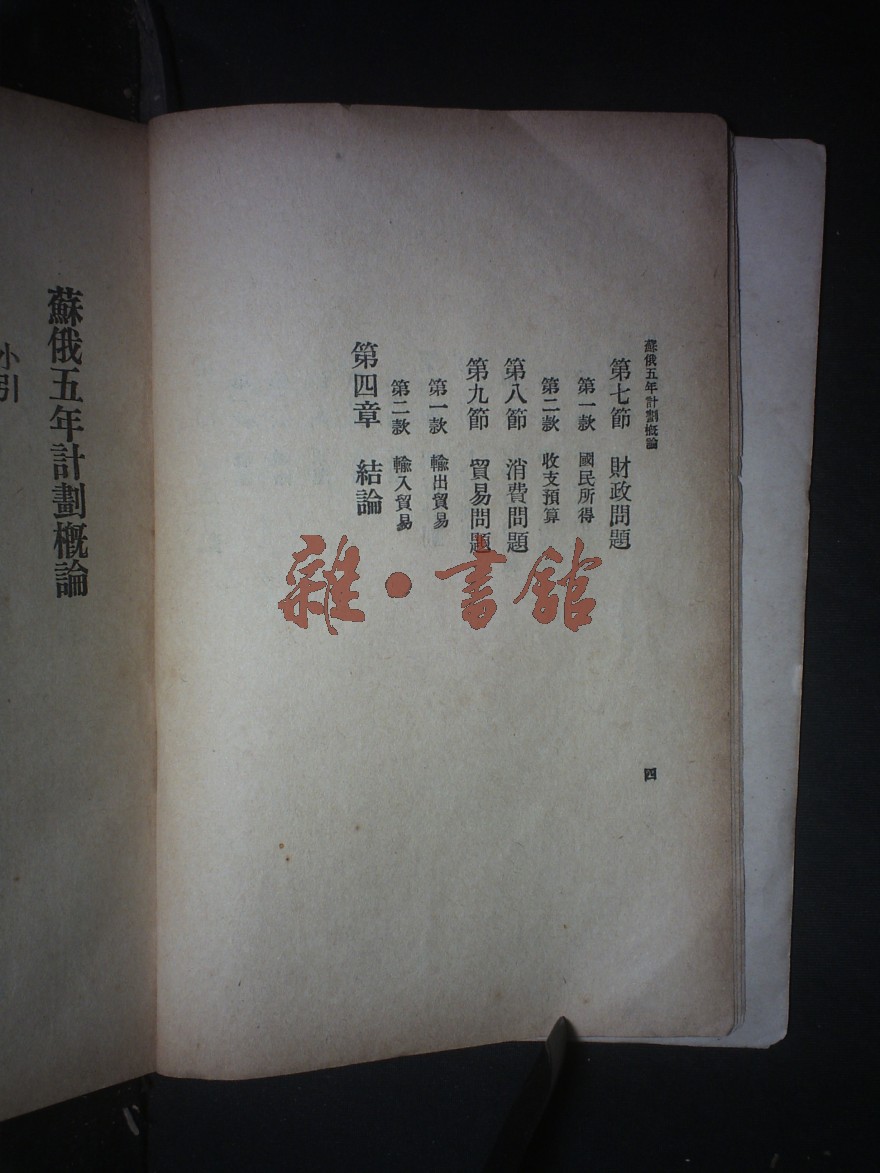 蘇俄五年計劃概論
第七節 財政問題
第一款 國民所得
第二款 收支預算
第八節 消費問題
第九節 貿易問題
第一款 輸出貿易
第二款 輸入貿易
第四章 結論
四
雜·書館
蘇俄五年計劃概論
小引